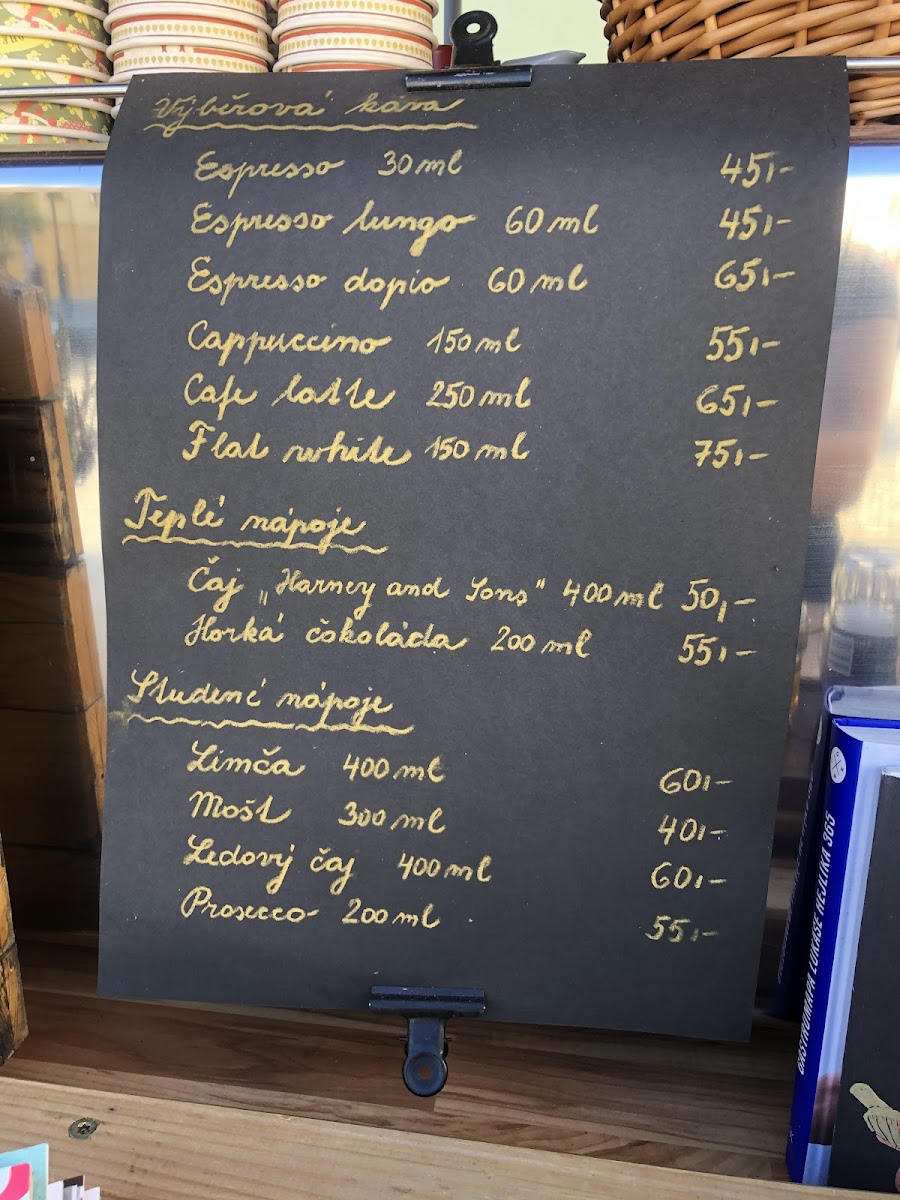 Výběrová káva
Espresso 30 ml 45,-
Espresso lungo 60 ml 45,-
Espresso dopio 60 ml 65,-
Cappuccino 150 ml 55,-
Cafe latte 250 ml 65,-
Flat white 150 ml 75,-
Teplé nápoje
Čaj „Harney and Sons" 400 ml 50,-
Horká čokoláda 200 ml 55,-
Studené nápoje
Limča 400 ml 60,-
Mošt 300 ml 40,-
Ledový čaj 400 ml 60,-
Prosecco 200 ml 55,-
GASTROMAPA LUKÁŠE HEJLÍKA 365